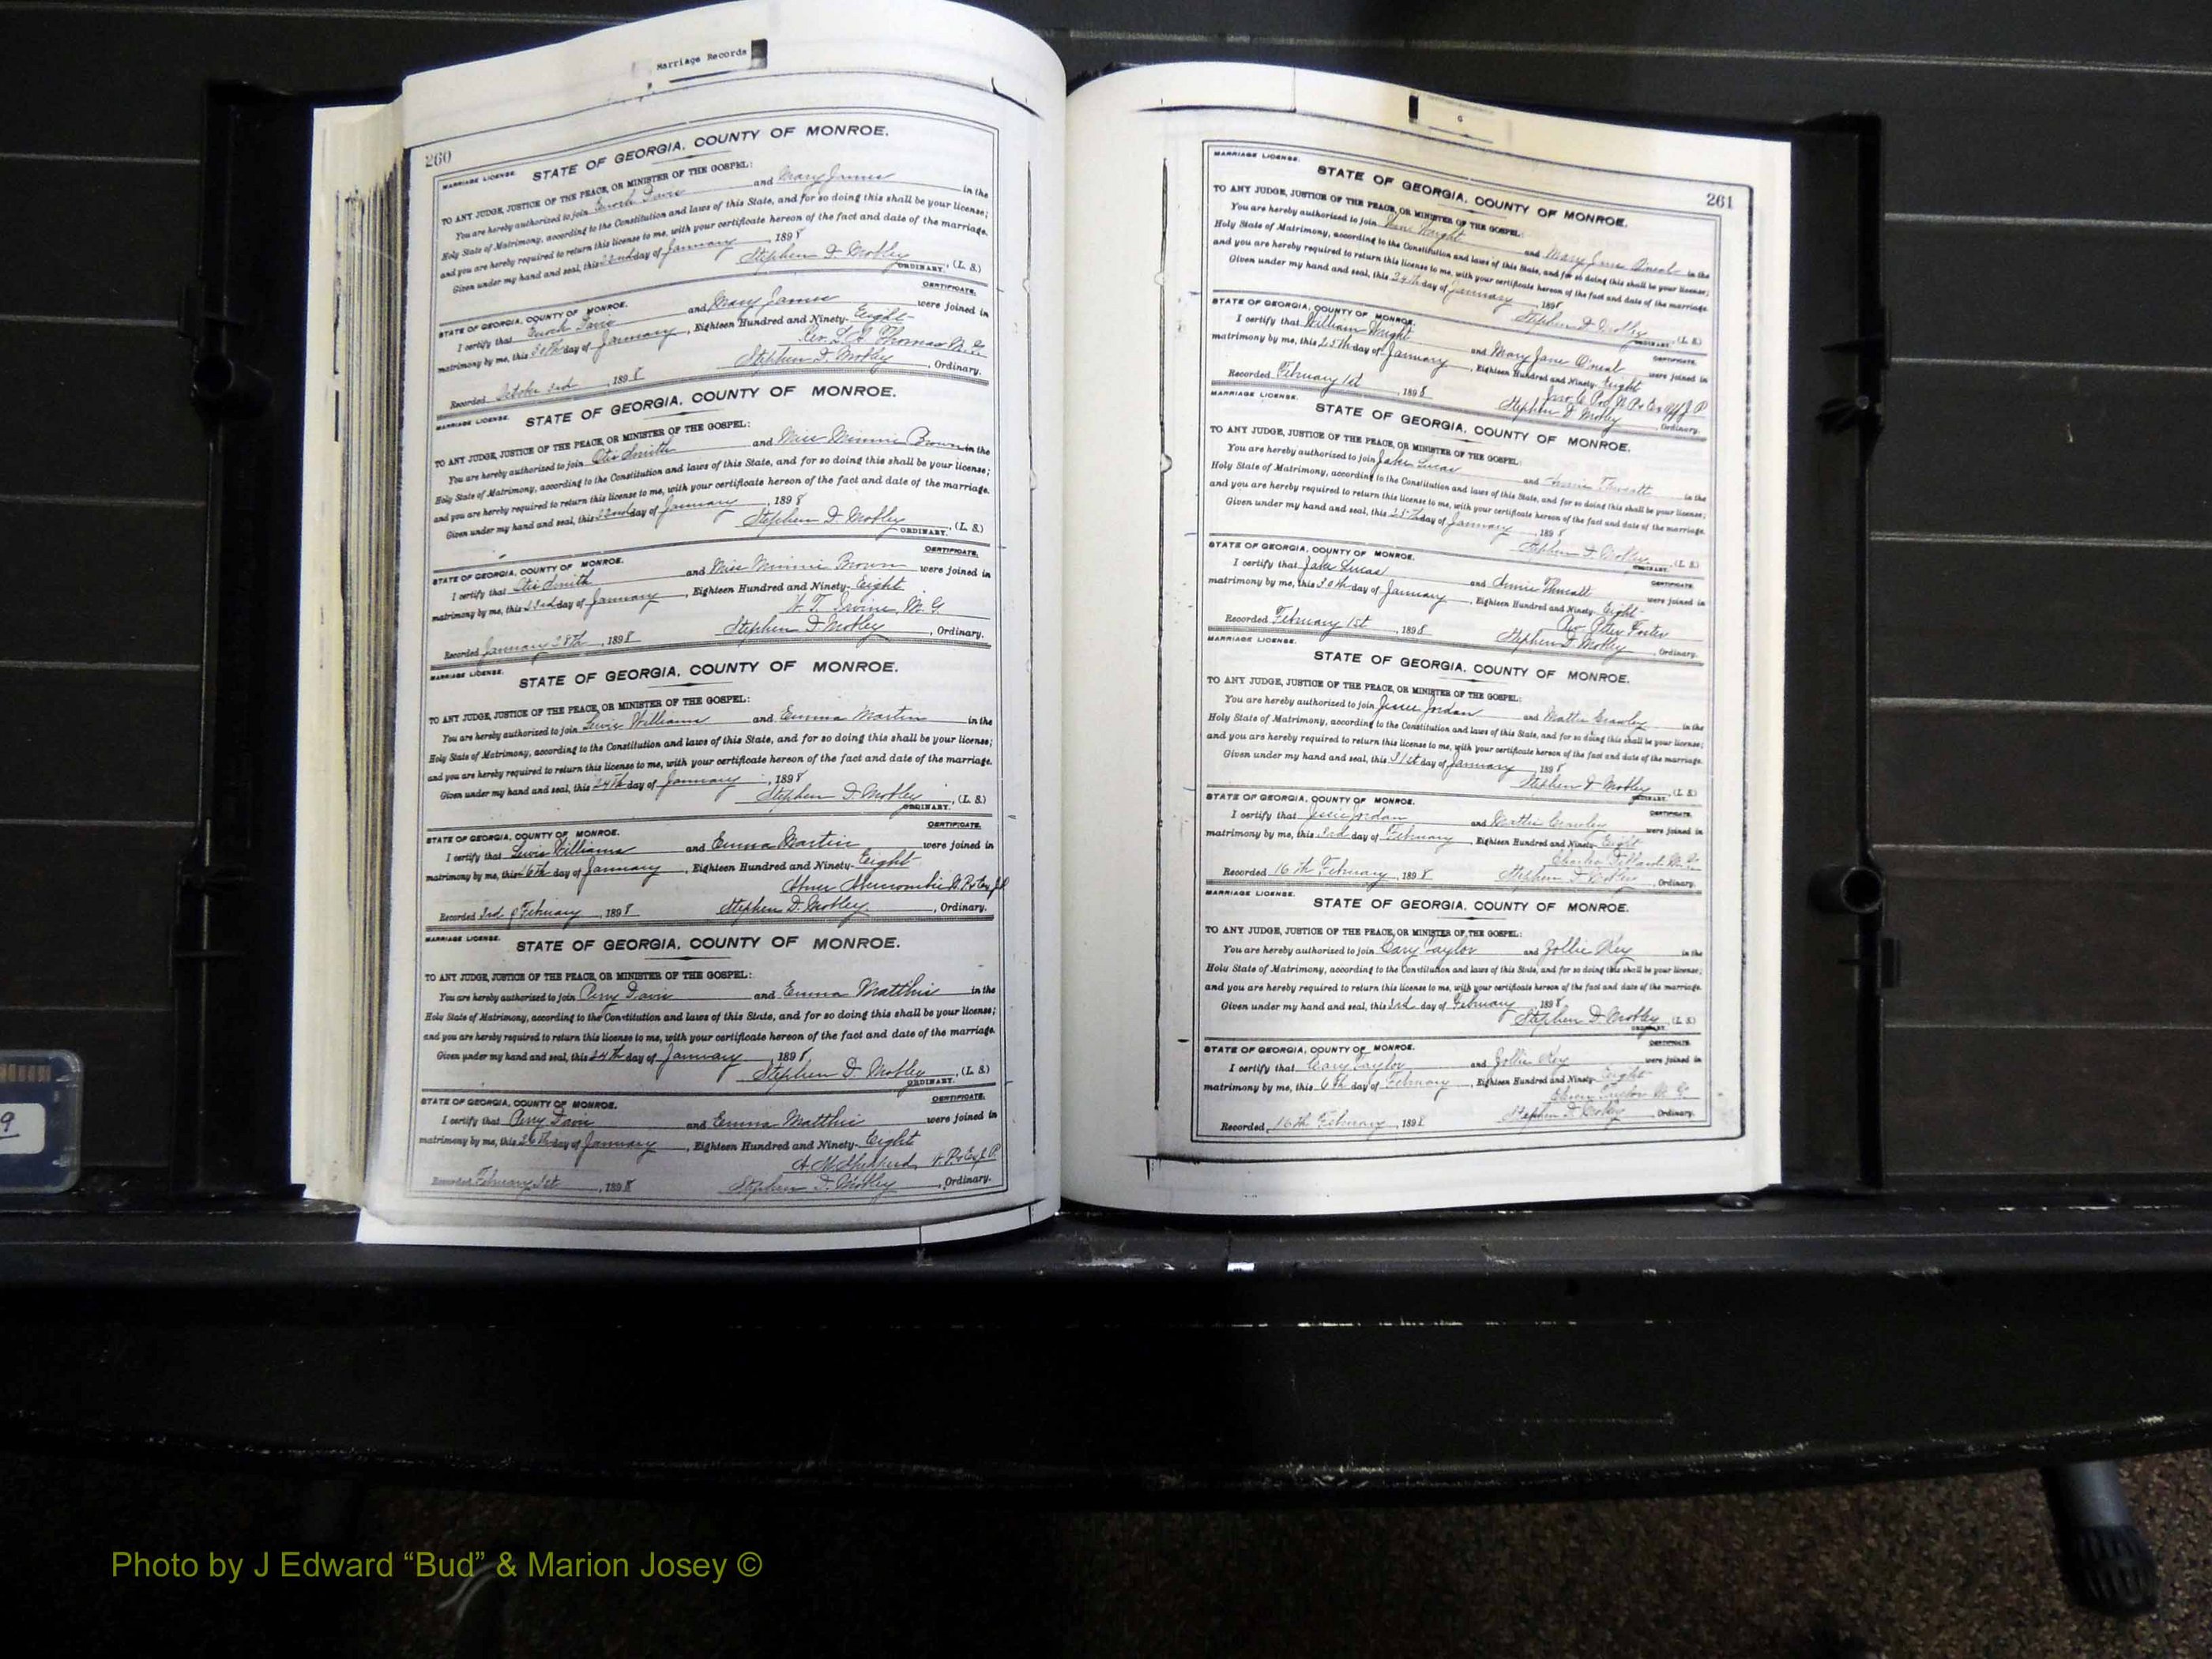 Marriage Records
260
MARRIAGE LICENSE. STATE OF GEORGIA, COUNTY OF MONROE.
TO ANY JUDGE, JUSTICE OF THE PEACE, OR MINISTER OF THE GOSPEL:
You are hereby authorized to join Enoch Davis and Mary James in the
Holy State of Matrimony, according to the Constitution and laws of this State, and for so doing this shall be your license;
and you are hereby required to return this license to me, with your certificate hereon of the fact and date of the marriage.
Given under my hand and seal, this 22nd day of January, 1898
Stephen D. Mobley (L. S.)
ORDINARY.
CERTIFICATE.
STATE OF GEORGIA, COUNTY OF MONROE.
I certify that Enoch Davis and Mary James were joined in
matrimony by me, this 30th day of January, Eighteen Hundred and Ninety-Eight
Rev. Thomas M. G.
Recorded October 3rd, 1898 Stephen D. Mobley, Ordinary.
MARRIAGE LICENSE. STATE OF GEORGIA, COUNTY OF MONROE.
TO ANY JUDGE, JUSTICE OF THE PEACE, OR MINISTER OF THE GOSPEL:
You are hereby authorized to join Otis Smith and Miss Minnie Brown in the
Holy State of Matrimony, according to the Constitution and laws of this State, and for so doing this shall be your license;
and you are hereby required to return this license to me, with your certificate hereon of the fact and date of the marriage.
Given under my hand and seal, this 22nd day of January, 1898
Stephen D. Mobley (L. S.)
ORDINARY.
CERTIFICATE.
STATE OF GEORGIA, COUNTY OF MONROE.
I certify that Otis Smith and Miss Minnie Brown were joined in
matrimony by me, this 23rd day of January, Eighteen Hundred and Ninety-Eight
Irvine, M. G.
Recorded January 28th, 1898 Stephen D. Mobley, Ordinary.
MARRIAGE LICENSE. STATE OF GEORGIA, COUNTY OF MONROE.
TO ANY JUDGE, JUSTICE OF THE PEACE, OR MINISTER OF THE GOSPEL:
You are hereby authorized to join Lewis Williams and Emma Martin in the
Holy State of Matrimony, according to the Constitution and laws of this State, and for so doing this shall be your license;
and you are hereby required to return this license to me, with your certificate hereon of the fact and date of the marriage.
Given under my hand and seal, this 24th day of January, 1898
Stephen D. Mobley (L. S.)
ORDINARY.
CERTIFICATE.
STATE OF GEORGIA, COUNTY OF MONROE.
I certify that Lewis Williams and Emma Martin were joined in
matrimony by me, this day of January, Eighteen Hundred and Ninety-Eight
Abner Abercrombie
Recorded 3rd of February, 1898 Stephen D. Mobley, Ordinary.
MARRIAGE LICENSE. STATE OF GEORGIA, COUNTY OF MONROE.
TO ANY JUDGE, JUSTICE OF THE PEACE, OR MINISTER OF THE GOSPEL:
You are hereby authorized to join Perry Davis and Emma Matthis in the
Holy State of Matrimony, according to the Constitution and laws of this State, and for so doing this shall be your license;
and you are hereby required to return this license to me, with your certificate hereon of the fact and date of the marriage.
Given under my hand and seal, this 24th day of January, 1898
Stephen D. Mobley (L. S.)
ORDINARY.
CERTIFICATE.
STATE OF GEORGIA, COUNTY OF MONROE.
I certify that Perry Davis and Emma Matthis were joined in
matrimony by me, this 26th day of January, Eighteen Hundred and Ninety-Eight
Shepherd
Recorded February 1st, 1898 Stephen D. Mobley, Ordinary.
261
MARRIAGE LICENSE. STATE OF GEORGIA, COUNTY OF MONROE.
TO ANY JUDGE, JUSTICE OF THE PEACE, OR MINISTER OF THE GOSPEL:
You are hereby authorized to join Wright and Mary Jane O'neal in the
Holy State of Matrimony, according to the Constitution and laws of this State, and for so doing this shall be your license;
and you are hereby required to return this license to me, with your certificate hereon of the fact and date of the marriage.
Given under my hand and seal, this 24th day of January, 1898
Stephen D. Mobley (L. S.)
ORDINARY.
CERTIFICATE.
STATE OF GEORGIA, COUNTY OF MONROE.
I certify that William Wright and Mary Jane O'neal were joined in
matrimony by me, this 25th day of January, Eighteen Hundred and Ninety-Eight
Recorded February 1st, 1898 Stephen D. Mobley, Ordinary.
MARRIAGE LICENSE. STATE OF GEORGIA, COUNTY OF MONROE.
TO ANY JUDGE, JUSTICE OF THE PEACE, OR MINISTER OF THE GOSPEL:
You are hereby authorized to join Jake Lucas and Annie Thweatt in the
Holy State of Matrimony, according to the Constitution and laws of this State, and for so doing this shall be your license;
and you are hereby required to return this license to me, with your certificate hereon of the fact and date of the marriage.
Given under my hand and seal, this 25th day of January, 1898
Stephen D. Mobley (L. S.)
ORDINARY.
CERTIFICATE.
STATE OF GEORGIA, COUNTY OF MONROE.
I certify that Jake Lucas and Annie Thweatt were joined in
matrimony by me, this 30th day of January, Eighteen Hundred and Ninety-Eight
Rev Peter Foster
Recorded February 1st, 1898 Stephen D. Mobley, Ordinary.
MARRIAGE LICENSE. STATE OF GEORGIA, COUNTY OF MONROE.
TO ANY JUDGE, JUSTICE OF THE PEACE, OR MINISTER OF THE GOSPEL:
You are hereby authorized to join Jessie Jordan and Mattie Crawley in the
Holy State of Matrimony, according to the Constitution and laws of this State, and for so doing this shall be your license;
and you are hereby required to return this license to me, with your certificate hereon of the fact and date of the marriage.
Given under my hand and seal, this 31st day of January, 1898
Stephen D. Mobley (L. S.)
ORDINARY.
CERTIFICATE.
STATE OF GEORGIA, COUNTY OF MONROE.
I certify that Jessie Jordan and Mattie Crawley were joined in
matrimony by me, this 3rd day of February, Eighteen Hundred and Ninety-Eight
Charles Dillard M. G.
Recorded 16th February, 1898 Stephen D. Mobley, Ordinary.
MARRIAGE LICENSE. STATE OF GEORGIA, COUNTY OF MONROE.
TO ANY JUDGE, JUSTICE OF THE PEACE, OR MINISTER OF THE GOSPEL:
You are hereby authorized to join Cary Taylor and Zollie Key in the
Holy State of Matrimony, according to the Constitution and laws of this State, and for so doing this shall be your license;
and you are hereby required to return this license to me, with your certificate hereon of the fact and date of the marriage.
Given under my hand and seal, this 3rd day of February, 1898
Stephen D. Mobley (L. S.)
ORDINARY.
CERTIFICATE.
STATE OF GEORGIA, COUNTY OF MONROE.
I certify that Cary Taylor and Zollie Key were joined in
matrimony by me, this 6th day of February, Eighteen Hundred and Ninety-Eight
Taylor M. G.
Recorded 16th February, 1898 Stephen D. Mobley, Ordinary.
9
Photo by J Edward “Bud” & Marion Josey ©